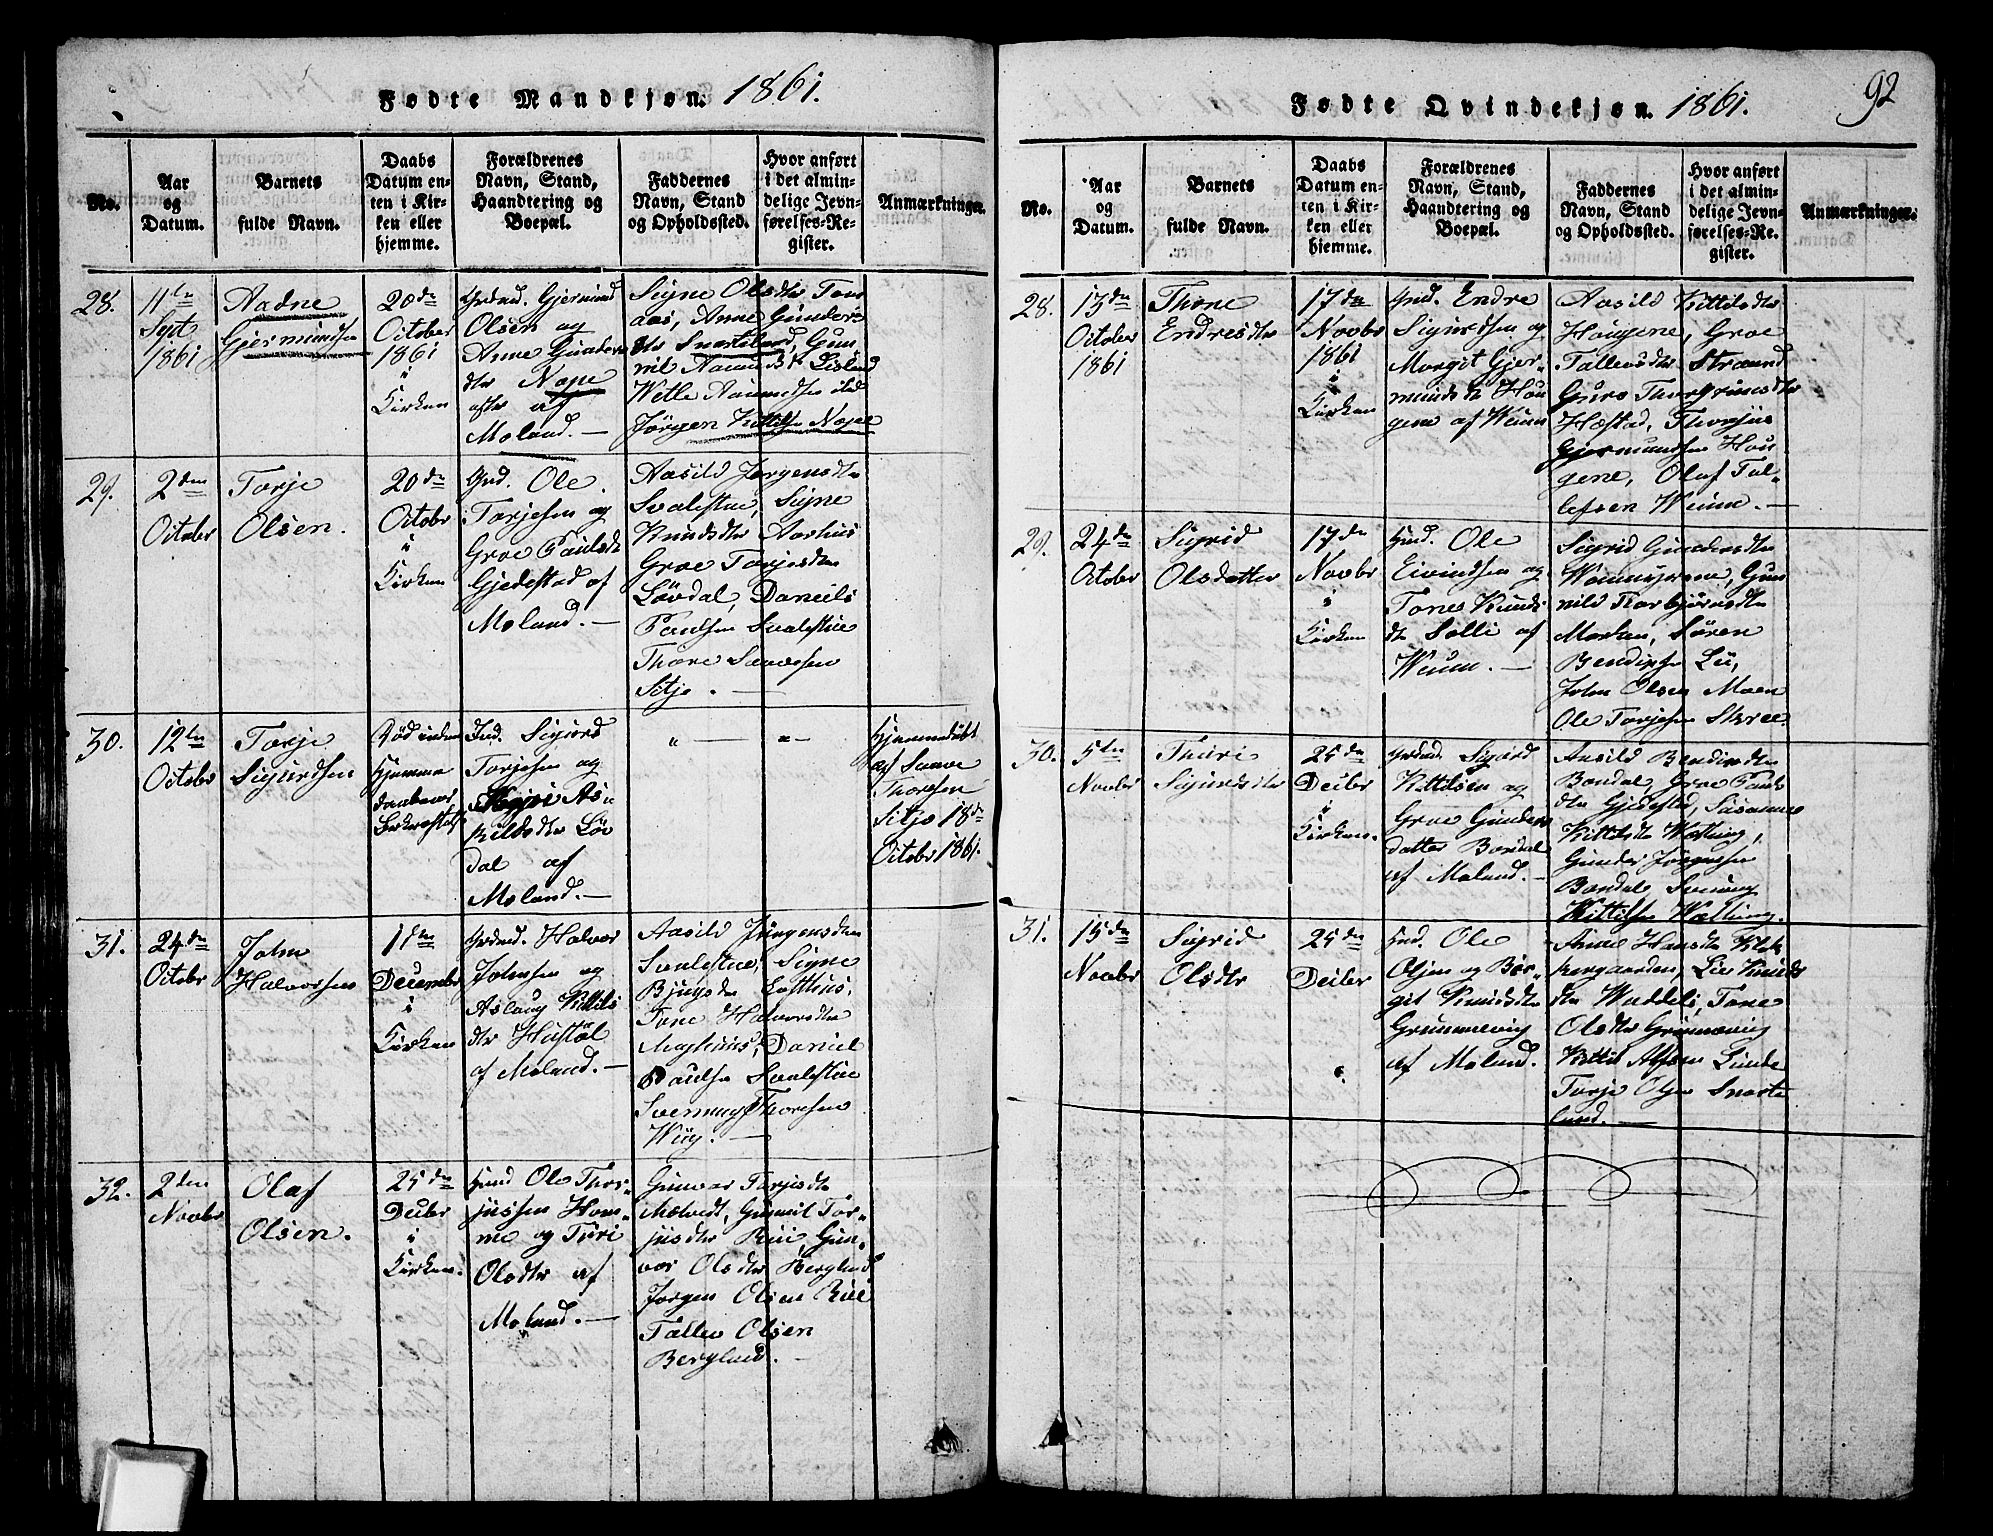 Fødte Mandkjøn. 1861.
No.
Aar
og
Datum.
Barnets
fulde Navn.
Daabs
Datum en-
ten i Kir-
ken eller
hjemme.
Forældrenes
Navn, Stand,
Haandtering og
Boepæl.
Faddernes
Navn, Stand
og Opholdssted.
Hvor anført
i det almin-
delige Jevn-
førelses-Re-
gister.
Anmærkninger.
28.
11te
Sept
1861
Aadne
Gjermundsen
20de
October
1861
i
Kirken
Gjermund
Olsen og
Anne Gunders
dtr Nape
af
Moland. —
Signe Olsdtr
aas, Anne Gunders
dtr Snartland, Gun
nil
Wetle Aanundsen ibd
Jørgen Kittilsen Nape
29.
2den
Octobr
Torje
Olsen.
20de
Octobr
i
Kirken
Grd. Ole
Torjesen og
Groe Paulsdt
Gjedestad af
Moland. —
Aasild Jørgensdtr
Svalestue, Signe
Knudsdtr Aashus
Groe Torjesdtr
Løvdal, Daniels
Paulsen Svalestue
Thore Saavesen
Sitje. —
30.
12te
Octobr
Torje
Sigurdsen
Død inden
Hjemme
daabens
Bekræftelse
Ind. Sigurd
Torjesen og
As-
kildsdtr Løv
dal af
Moland. —
" — " —
Hjemmedøbt
af Saave
Thoresen
Sitje 18de
Octobr 1861.
31.
24de
Octobr
John
Halvorsen
11te
December
i
Kirken
Halvor
Johnsen og
Aslaug Kittils
dtr Hustøl
af Moland. —
Aasild Jørgensdtr
Svalestue, Signe
Tone Halvorsdtr
Daniel
Paulsen Svalestue
Svenung Thoresen
Wiig. —
32.
2den
Novbr
Olaf
Olsen.
25de
Decbr
i
Kirken.
Hmd Ole Thor-
jussen Hom-
me og Turi
Olsdtr af
Moland. —
Gunvor Torjesdtr
Gunnil Tor-
jusdtr Rui Gun-
vor Olsdtr Berglund
Jørgen Olsen Rue
Tallev Olsen
Berglund. —
92
Fødte Qvindekjøn. 1861.
No.
Aar
og
Datum.
Barnets
fulde Navn.
Daabs
Datum en-
ten i Kir-
ken eller
hjemme.
Forældrenes
Navn, Stand,
Haandtering og
Boepæl.
Faddernes
Navn, Stand
og Opholdssted.
Hvor anført
i det almin-
delige Jevn-
førelses-Re-
gister.
Anmærkninger.
28.
13de
October
1861
Thone
Endresdtr
17de
Novbr
1861
i
Kirken
Endre
Sigurdsen og
Margit Gjer-
mundsdt Hou
gene af Weum
Aasild Kittilsdtr
Hougene, Groe
Tallevsdtr Straand
Guro Thorgrimsdtr
Hæstad, Thorjus
Gjermundsen Hou
gene, Olaf Tal-
lefsen Weum. —
29.
24de
Octobr
Sigrid
Olsdatter
17de
Novbr
i
Kirken
Hmd. Ole
Eivindsen og
Tone Knuds
dt Solli af
Weum. —
Sigrid Gundersdtr
Gun
nild Thorbjørnsdtr
Søren
Bendixsen Lii,
John Olsen Moen
Ole Torjesen Skree
30.
5te
Novbr
Thuri
Sigurdsdtr
25de
Decbr
i
Kirken.
Sigurd
Kittilsen og
Groe Gunders
datter Bondal
af Moland. —
Aasild Bendixsdtr
Bondal, Groe Pauls
dtr Gjedestad, Susanne
Kittilsdtr Wætting,
Gunder Jørgensen
Bondal, Svenung
Kittilsen Wætting.
31.
15de
Novbr
Sigrid
Olsdtr
25de
Decbr
"
Hmd. Ole
Olsen og Bør-
git Knudsdtr
Grimmevig
af Moland.
Anne Hansdtr
Liv Knuds
dtr Waddeli, Tone
Olsdtr Grimmevig
Kittil Alfsen Linde
Torje Olsen Snarte
lund. —